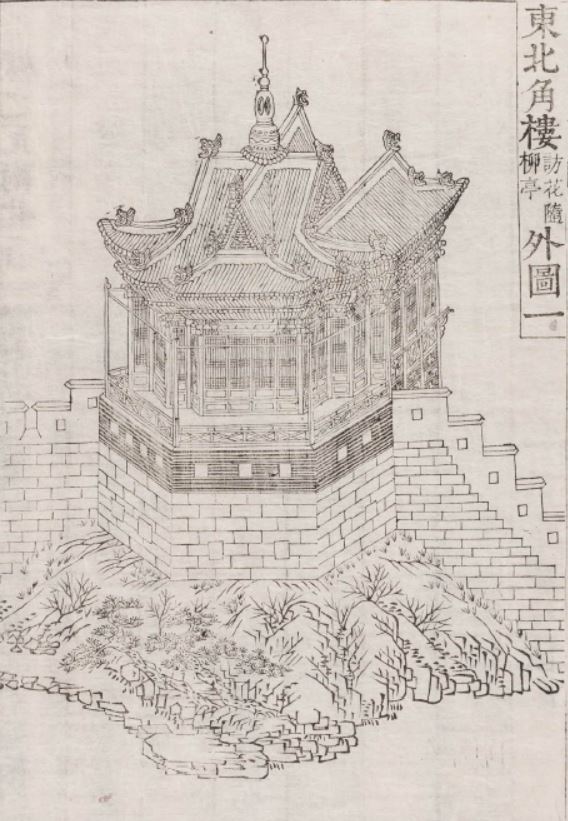 東北角樓訪花隨柳亭外圖一